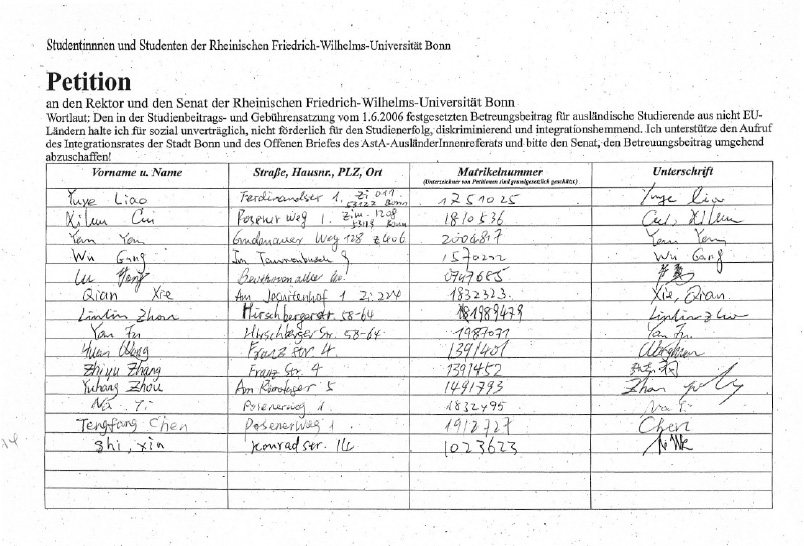 Studentinnnen und Studenten der Rheinischen Friedrich-Wilhelms-Universität Bonn
Petition
an den Rektor und den Senat der Rheinischen Friedrich-Wilhelms-Universität Bonn
Wortlaut: Den in der Studienbeitrags- und Gebührensatzung vom 1.6.2006 festgesetzten Betreungsbeitrag für ausländische Studierende aus nicht EU-
Ländern halte ich für sozial unverträglich, nicht förderlich für den Studienerfolg, diskriminierend und integrationshemmend. Ich unterstütze den Aufruf
des Integrationsrates der Stadt Bonn und des Offenen Briefes des AstA-AusländerInnenreferats und bitte den Senat, den Betreuungsbeitrag umgehend
abzuschaffen!
Vorname u. Name Straße, Hausnr., PLZ, Ort Matrikelnummer Unterschrift
(Unterzeichner von Petitionen sind grundgesetzlich geschützt)
Yuye Liao 1. Zi 011 53127 Bonn 1751025 Yuye Liao
Xilun Cui Posener Weg 1. Zim-1208 Bonn 1810536 Cui, Xilun
Yan Yan Weg 128 Z406 Yan Yan
Wu Gang Im Tannenbusch 1570222 Wu Gang
0947685
Qian Xie Am 1 Zi 224 1832323. Xie, Qian.
Linlin Zhou Hirschbergerstr. 58-64 1989479 Linlin Zhou
Yan Fu Hirschberger Str. 58-64 1987071 Yan Fu
Huan Wang Franz Str 4. 1391401
Zhiyu Zhang Franz Str. 4 1391452
Yuhang Zhou Am 5 1491793 Zhou
Na Yi Posenerweg 1. 1832495 Na Yi
Tengfang Chen Posener Weg 1 1912727 Chen
Shi, xin Konradstr. 1023623